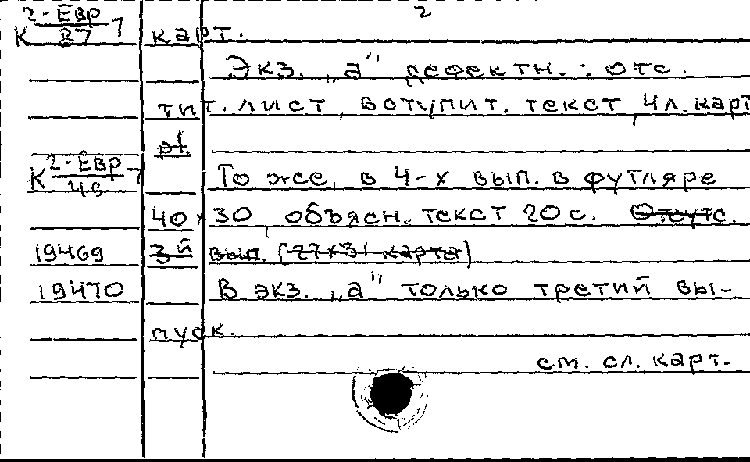 2
К 2-Евр/87 7 карт.
Экз. „а" дефектн.: отс.
тит. лист, вступит. текст, 4 л. карт
К 2-Евр/46 7 То же, в 4-х вып. в футляре
40 х 30, объясн. текст 20 с. Отсутс.
19469 3й вып. (27х31 карта)
19470 В экз. „а" только третий вы-
пуск.
см. сл. карт.